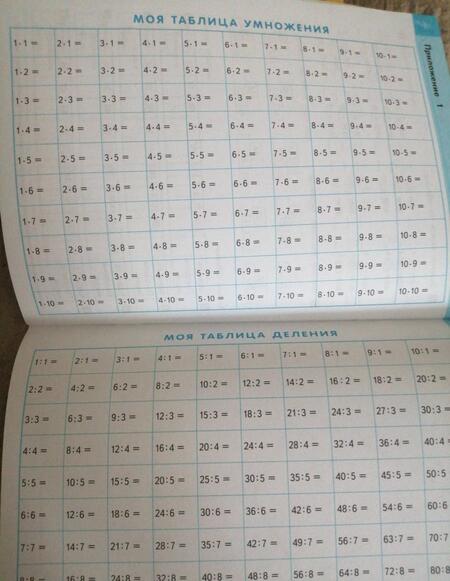 МОЯ ТАБЛИЦА УМНОЖЕНИЯ
Приложение 1
1·1 = 2·1 = 3·1 = 4·1 = 5·1 = 6·1 = 7·1 = 8·1 = 9·1 = 10·1 =
1·2 = 2·2 = 3·2 = 4·2 = 5·2 = 6·2 = 7·2 = 8·2 = 9·2 = 10·2 =
1·3 = 2·3 = 3·3 = 4·3 = 5·3 = 6·3 = 7·3 = 8·3 = 9·3 = 10·3 =
1·4 = 2·4 = 3·4 = 4·4 = 5·4 = 6·4 = 7·4 = 8·4 = 9·4 = 10·4 =
1·5 = 2·5 = 3·5 = 4·5 = 5·5 = 6·5 = 7·5 = 8·5 = 9·5 = 10·5 =
1·6 = 2·6 = 3·6 = 4·6 = 5·6 = 6·6 = 7·6 = 8·6 = 9·6 = 10·6 =
1·7 = 2·7 = 3·7 = 4·7 = 5·7 = 6·7 = 7·7 = 8·7 = 9·7 = 10·7 =
1·8 = 2·8 = 3·8 = 4·8 = 5·8 = 6·8 = 7·8 = 8·8 = 9·8 = 10·8 =
1·9 = 2·9 = 3·9 = 4·9 = 5·9 = 6·9 = 7·9 = 8·9 = 9·9 = 10·9 =
1·10 = 2·10 = 3·10 = 4·10 = 5·10 = 6·10 = 7·10 = 8·10 = 9·10 = 10·10 =
МОЯ ТАБЛИЦА ДЕЛЕНИЯ
1:1 = 2:1 = 3:1 = 4:1 = 5:1 = 6:1 = 7:1 = 8:1 = 9:1 = 10:1 =
2:2 = 4:2 = 6:2 = 8:2 = 10:2 = 12:2 = 14:2 = 16:2 = 18:2 = 20:2 =
3:3 = 6:3 = 9:3 = 12:3 = 15:3 = 18:3 = 21:3 = 24:3 = 27:3 = 30:3 =
4:4 = 8:4 = 12:4 = 16:4 = 20:4 = 24:4 = 28:4 = 32:4 = 36:4 = 40:4 =
5:5 = 10:5 = 15:5 = 20:5 = 25:5 = 30:5 = 35:5 = 40:5 = 45:5 = 50:5
6:6 = 12:6 = 18:6 = 24:6 = 30:6 = 36:6 = 42:6 = 48:6 = 54:6 = 60:6
7:7 = 14:7 = 21:7 = 28:7 = 35:7 = 42:7 = 49:7 = 56:7 = 63:7 = 70:7
8:8 = 16:8 = 24:8 = 32:8 = 40:8 = 48:8 = 56:8 = 64:8 = 72:8 = 80:8